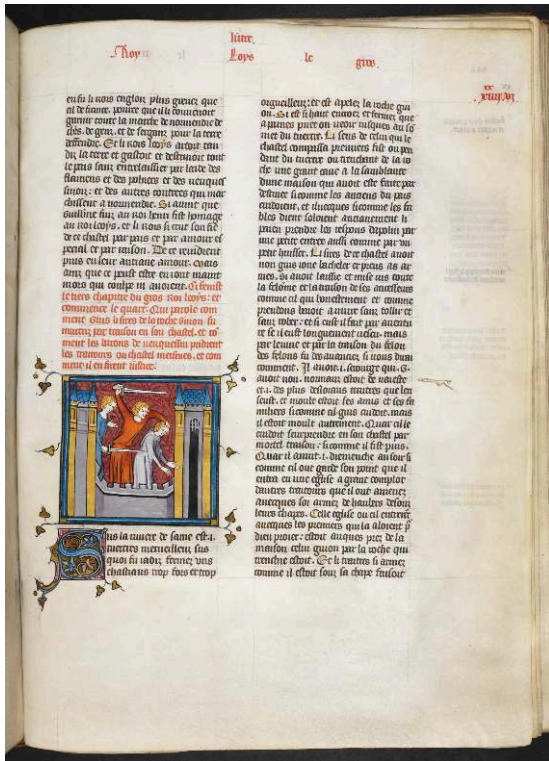 liure
Roy Loys le gros
en fu li rois englois plus greuez que
cil de france. pource que il li couuenoit
garnir toute la marche de normendie de
ches. de gent. et de serganz pour la terre
deffendre. Et li rois looys
la terre et gastoit et destruioit tout
le pais sanz entrelaissier par laide des
flamens et des pohiers et des
et des autres contrees qui mar
chissent a normendie. Si auint que
guill fiuz au roi henri fist homage
au roi loys. et li rois
de ce chastel par pais et par amour
et par raison. De ce reuindrent
puis en leur anciane amour. mais
ainz que ce peust estre en sont maint
mors qui coulpe ni auoient. Ci fenist
le tiers chapitre du gros roi looys. et
commence le quart. Qui parole com
ment li sires de la roche fu
murtriz par traison en son chastel. et co
ment les barons de uenquessin pridrent
les traitours ou chastel meismes. et com
ment il en firent iustice.
Sus la riuiere de saine est .i.
tuertres merueilleus sus
quoi fu iadis fermez uns
chastiaus trop fors et trop
orgueilleus. et est apelez la roche gui
on. Si est si haut encroez et fermez que
a paines puet on ueoir iusques au so
met du tuertre. Li sens de celui qui le
chastel compassa premiers fist ou pen
dant du tuertre ou trenchant de la ro
che une grant caue a la samblance
dune maison qui auoit este faite par
destinee si comme les anciens du pais
cuidoient. et iluecques si comme les fa
bles dient soloient ancianement li
paien prendre les respons dapolin par
une petite entree aussi comme par un
petit huisset. Li sires de ce chastel auoit
non guis ione bacheler et preus as ar
mes. Si auoit laissie et mise ius toute
la felonie et la traison de ses ancesseurs
comme cil qui honestement et comme
preudons beoit a uiure sanz tollir et
sanz rober. et si eust il fait par auentu
re se il eust longuement uescu. mais
par leuure et par la traison du felon
des felons fu deuanciez si uous dirai
comment. Il auoit .i. serouge qui .G.
auoit non. normanz estoit de naissence
et .i. des plus desloiaus traitres que len
seust. et moult estoit ses amis et ses fa
miliers si comme il guis cuidoit. mais
il estoit moult autrement. Quar cil le
cuidoit seurprendre en son chastel par
mortel traison. si comme il fist puis.
Quar il auint .i. diemenche au soir si
comme cil out garde son point que il
entra en une eglise a grant complot
dautres traitours que il out amenez
auecques soi armez de haubers desouz
leurs chapes. Celle eglise ou cil entrerent
auecques les premiers qui la aloient por
dieu proier. estoit auques pres de la
maison celui guion par la roche qui
trenchie estoit. Et li traitres si armez
comme il estoit souz sa chape faisoit